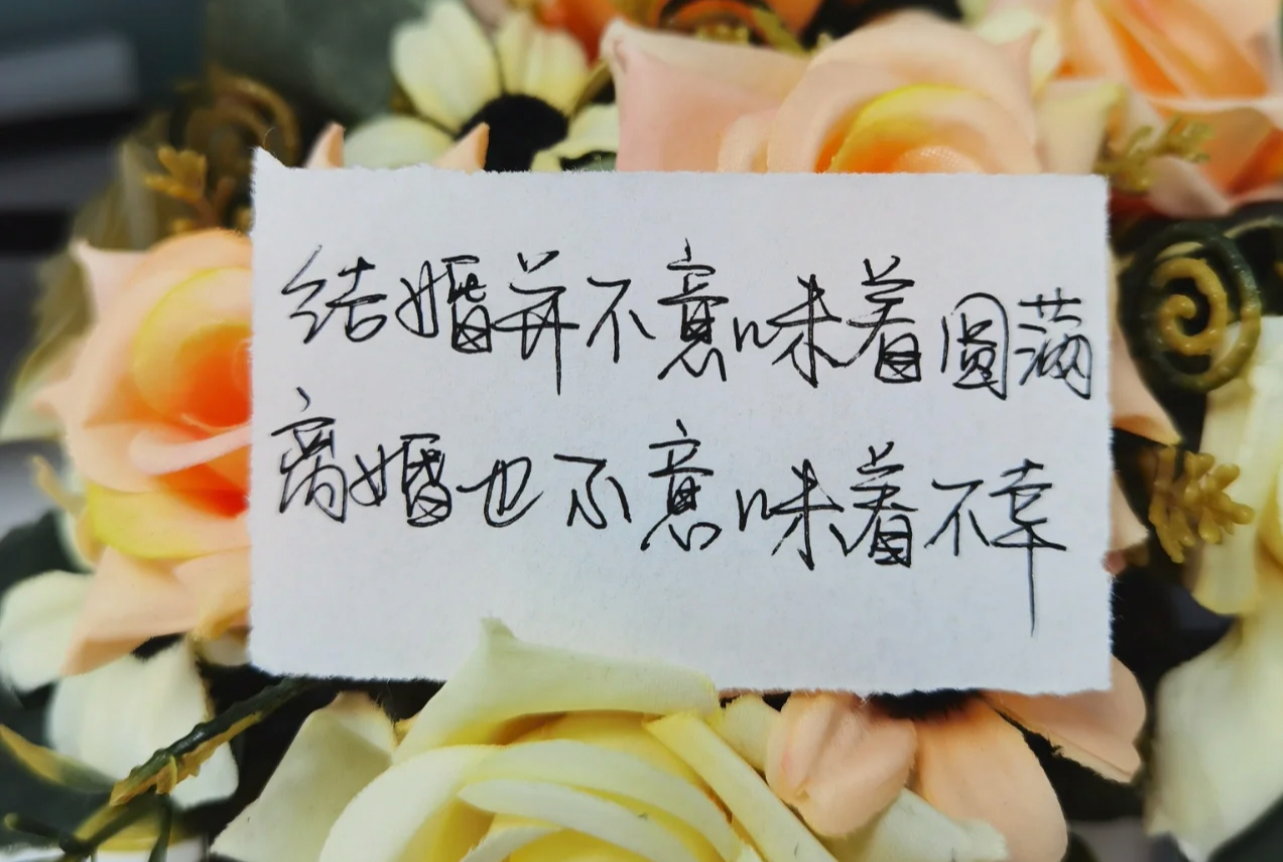 结婚并不意味着圆满
离婚也不意味着不幸